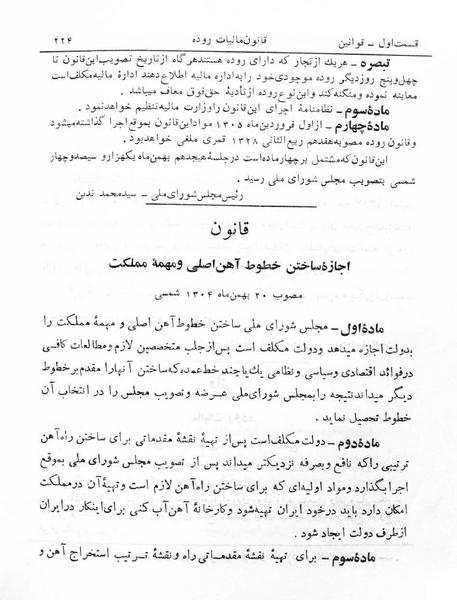 قسمت اول ـ قوانین قانون مالیات روده ۲۲۴
تبصره ـ هریك ازتجار که دارای روده هستند هرگاه ازتاریخ تصویب این قانون تا
چهل و پنج روز دیگر روده موجودی خود را به اداره مالیه اطلاع دهند ادارۀ مالیه مکلف است
معاینه نموده ومنگنه کند و این نوع روده از تأدیۀ حق فوق معاف میباشد .
مادۀ سوم ـ نظامنامۀ اجرای این قانون را وزارت مالیه تنظیم خواهد نمود .
مادۀ چهارم ـ از اول فروردین ماه ۱۳۰۵ مواد این قانون بموقع اجرا گذاشته میشود
و قانون روده مصوبه هفدهم ربیع الثانی ۱۳۲۸ قمری ملغی خواهد بود .
این قانون که مشتمل بر چهار ماده است در جلسۀ هیجدهم بهمن ماه یکهزار و سیصد و چهار
شمسی بتصویب مجلس شورای ملی رسید .
رئیس مجلس شورای ملی ـ سید محمد تدین
قانون
اجازۀ ساختن خطوط آهن اصلی و مهمۀ مملکت
مصوب ۲۰ بهمن ماه ۱۳۰۴ شمسی
مادۀ اول ـ مجلس شورای ملی ساختن خطوط آهن اصلی و مهمۀ مملکت را
بدولت اجازه میدهد و دولت مکلف است پس از جلب متخصصین لازم و مطالعات کافی
در فوائد اقتصادی و سیاسی و نظامی یك یا چند خط عمده که ساختن آنها را مقدم بر خطوط
دیگر میداند نتیجه را بمجلس شورای ملی عرضه و تصویب مجلس را در انتخاب آن
خطوط تحصیل نماید .
مادۀ دوم ـ دولت مکلف است پس از تهیۀ نقشۀ مقدماتی برای ساختن راه آهن
ترتیبی را که نافع و بصرفه نزدیکتر میداند پس از تصویب مجلس شورای ملی بموقع
اجرا بگذارد و مواد اولیه‌ای که برای ساختن راه آهن لازم است و تهیۀ آن در مملکت
امکان دارد باید در خود ایران تهیه شود و کارخانۀ آهن آب کنی برای اینکار در ایران
از طرف دولت ایجاد شود .
مادۀ سوم ـ برای تهیۀ نقشۀ مقدماتی راه و نقشۀ ترتیب استخراج آهن و